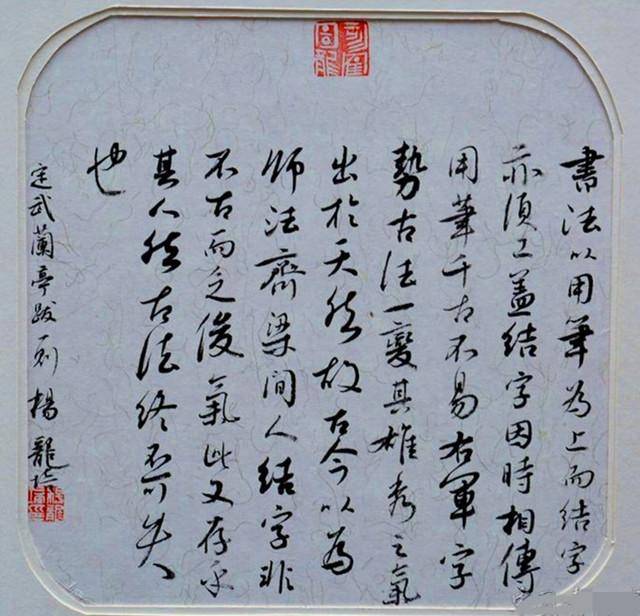 書法以用筆為上而結字
亦須工蓋結字因時相傳
用筆千古不易右軍字
勢古法一變其雄秀之氣
出於天然故古今以為
師法齊梁間人結字非
不古而乏俊氣此又存乎
其人然古法終不可失
也
定武蘭亭跋一则 楊龍